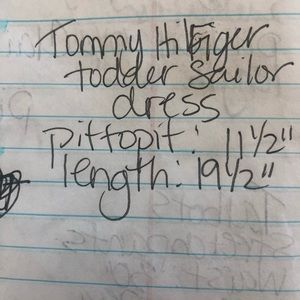 Tommy Hilfiger
todder Sailor
dress
pittopit: 11 1/2"
length: 19 1/2"